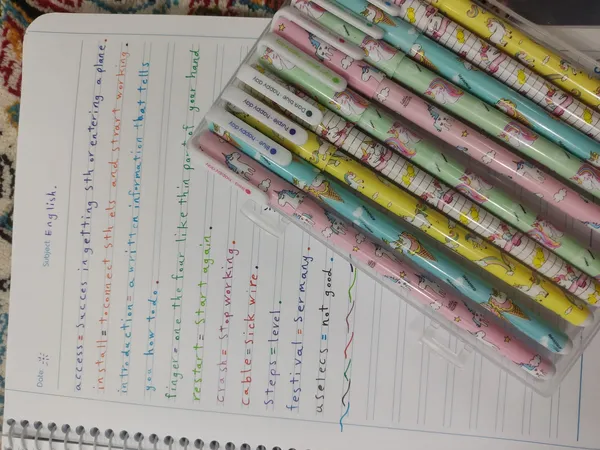 Date
Subject English.
access = succes in getting sth or entering a plane.
install = to connect sth els and strart working.
introduction = a writien information that tells
you how to do.
fingere one the four like thin part of your hand
restart = start again.
crash = stop working.
cable = sick wire.
steps = level.
festival = sermany.
uselecs = not good.
happy day
Dark blue happy day
Purple happy day
Blue happy day